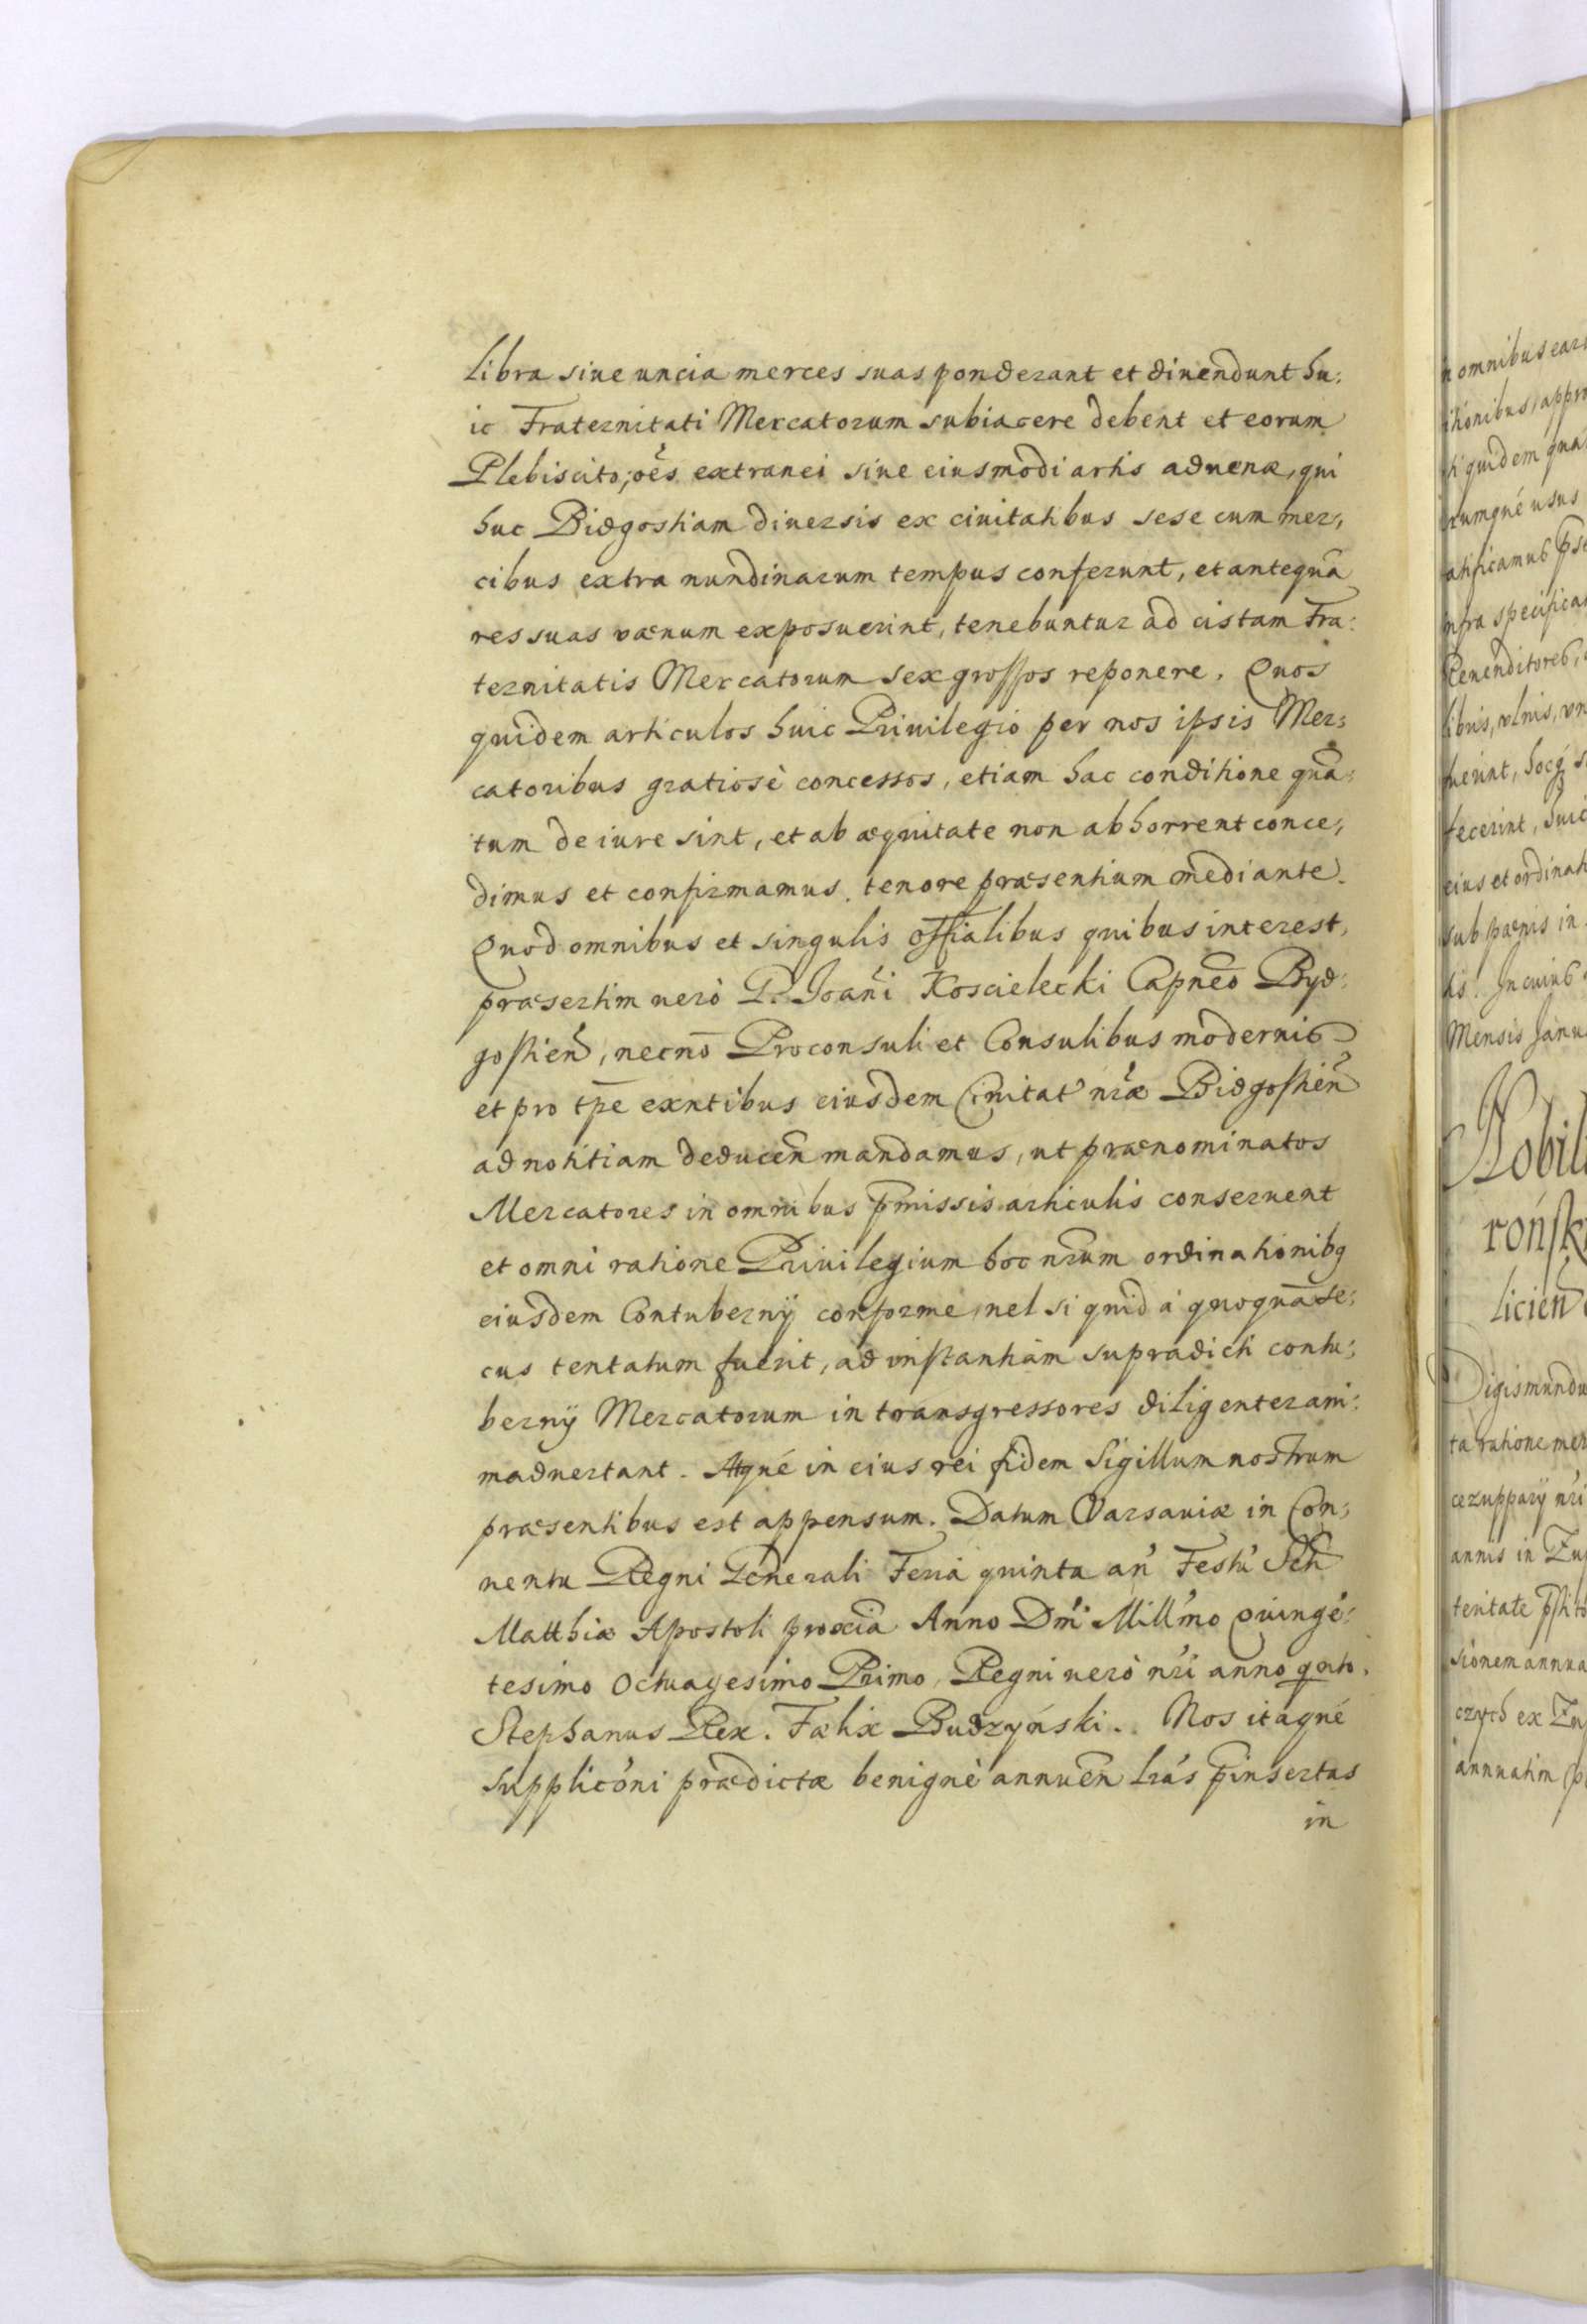 libra siue uncia merces suas ponderant et diuendunt hu:
ic Fraternitati Mercatorum subiacere debent et eorum
Plebiscito; oẽs extranei siue eiusmodi artis aduenæ, qui
huc Bidgostiam diuersis ex ciuitatibus sese cum mer:
cibus extra nundinarum tempus conferunt, et antequã
res suas vænum exposuerint, tenebuntur ad cistam Fra:
ternitatis Mercatorum sex grossos reponere. Quos
quidem articulos huic Priuilegio per nos ipsis Mer:
catoribus gratiosè concessos, etiam hac conditione quã:
tum de iure sint, et ab æquitate non abhorrent conce:
dimus et confirmamus. tenore præsentium mediante.
Quod omnibus et singulis offialibus quibus interest,
præsertim uerò G. Joañi Koscielecki Capneo Byd:
gostien̄, necnō Proconsuli et Consulibus modernis
et pro tp̄e exn̄tibus eiusdem Ciuitat' nr̃æ Bidgostien̄
ad notitiam deducen̄ mandamus, ut prænominatos
Mercatores in omnibus p̄missis articulis conseruent
et omni ratione Priuilegium hoc nr̄um ordinationibꝫ
eiusdem Contubernÿ conforme, uel si quid à quoquã se:
cus tentatum fuerit, ad instantiam supradicti contu:
bernÿ Mercatorum in transgressores diligenter ani:
maduertant. Atqué in eius rei fidem Sigillum nostrum
præsentibus est appensum. Datum Varsauiæ in Con:
uentu Regni Generali Feria quinta an̄ Festũ Sc̄ti
Matthiæ Apostoli proxia Anno Dm̄i Mill'mo Quingẽ:
tesimo Octuagesimo Primo, Regni uerò nr̄i anno qrto.
Stephanus Rex. Fælix Budzyński. Nos itaqué
Supplicõni prædictæ benignè annuen̄ lr̃as p̄insertas
in
in omnibus ear
quidem qua
rumqué usus
infra specifica
libris, vlnis, vn
fuerint, hocq́ꝫ s
fecerint, huic
eius et ordinat
sub pænis in
Mensis Janu
Nobili
rońsk
licień
Sigismundu
ta ratione mer
annis in Zu
czych ex Zu
annuatim p